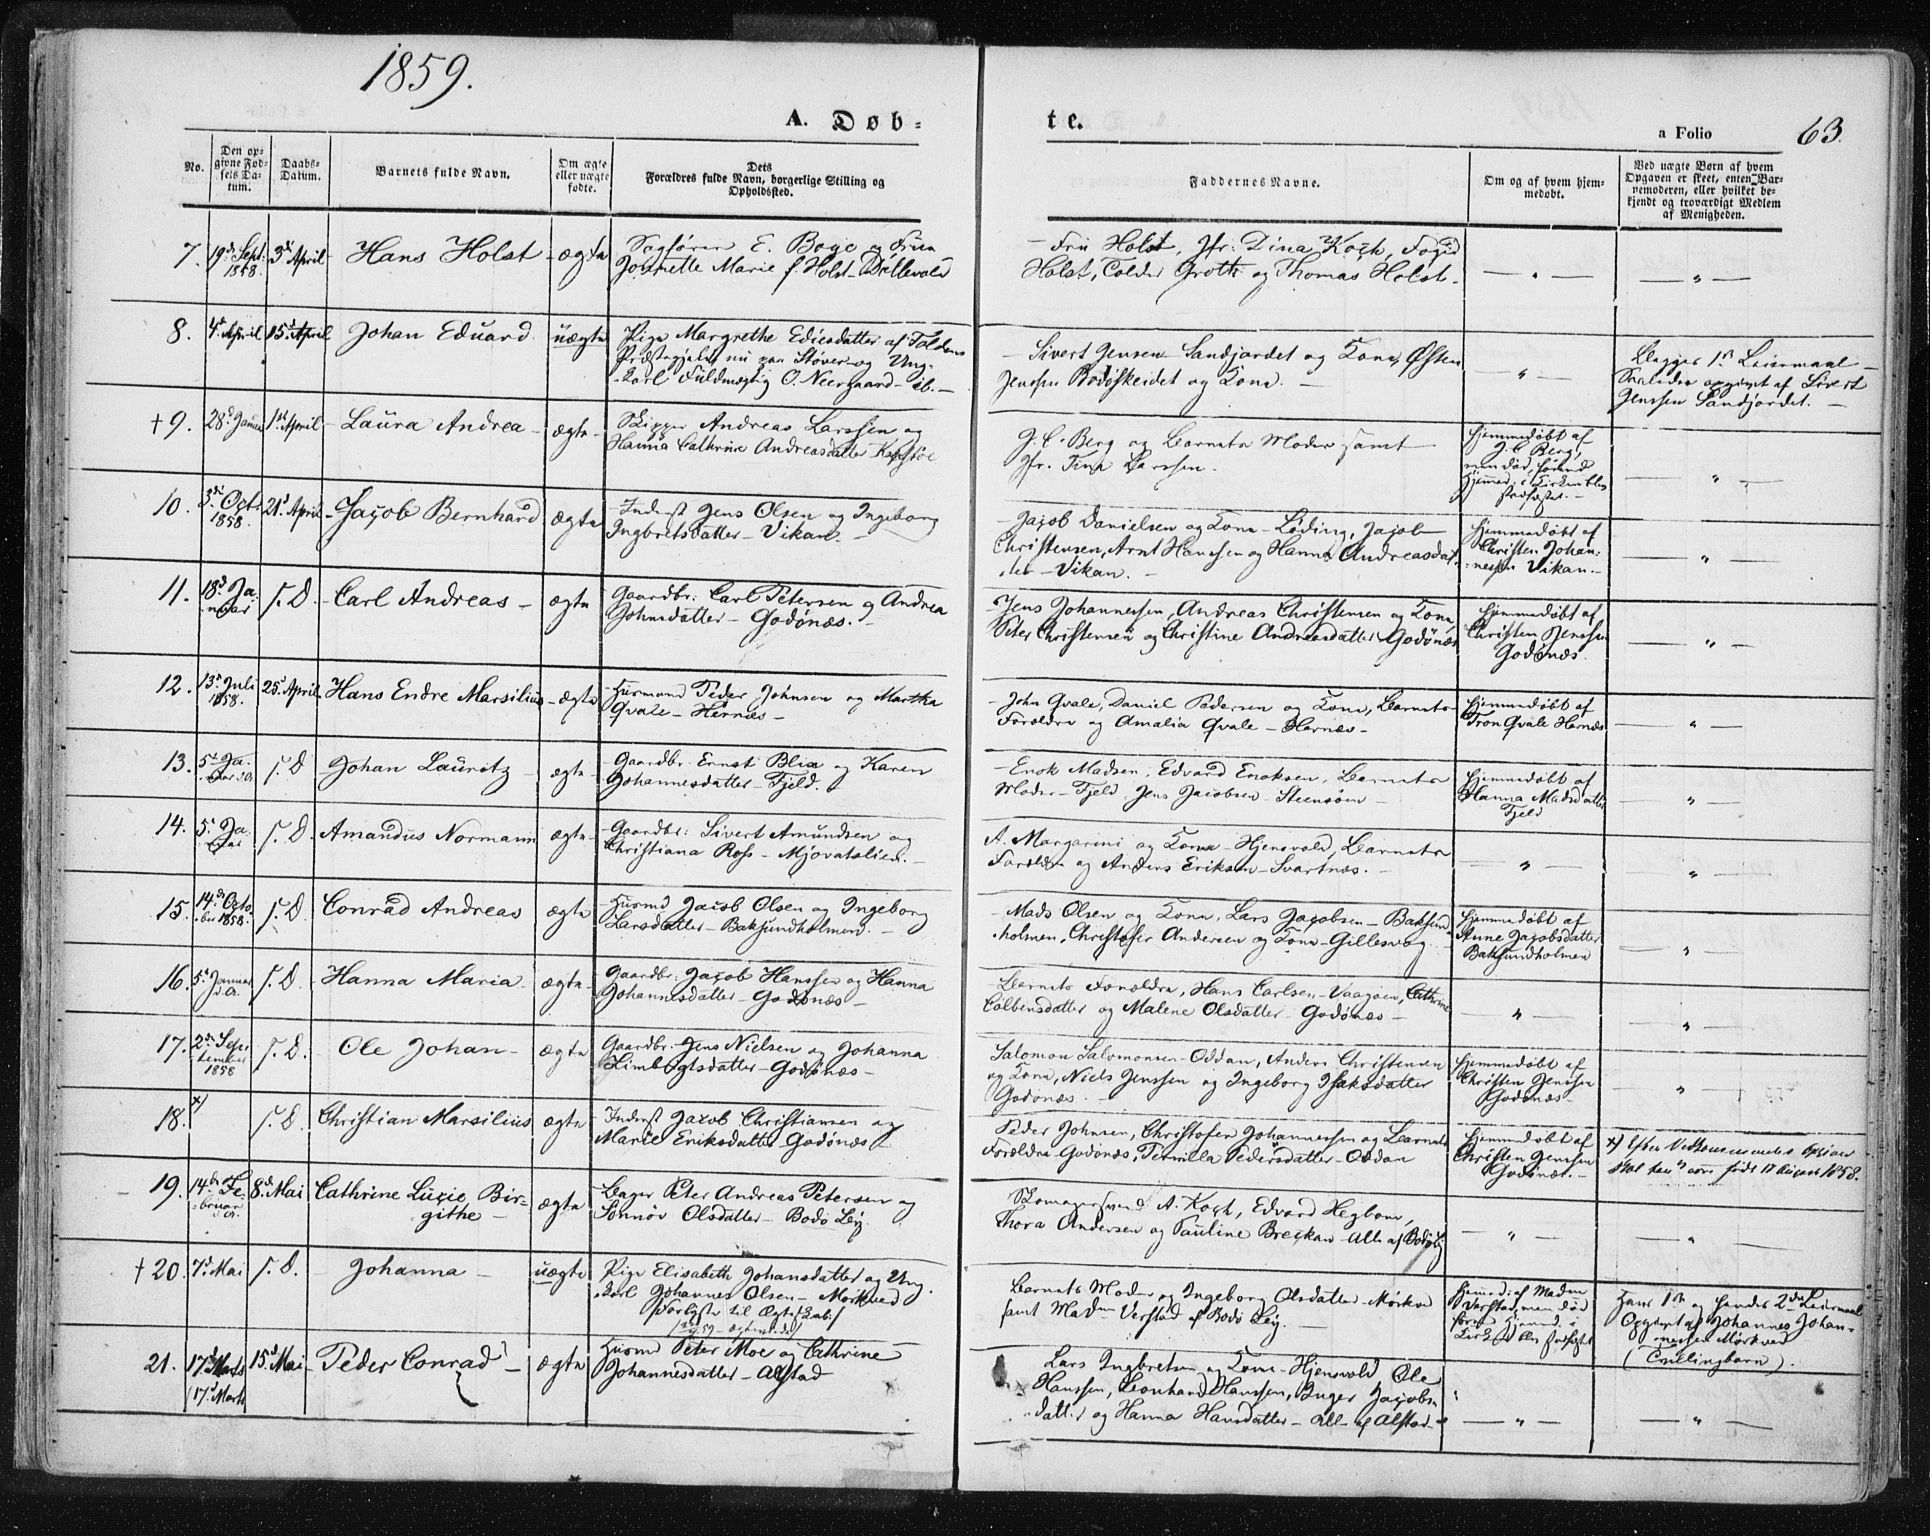 1859.
A. Døb-
te.
a Folio 63.
No.
Den op-
givne Fød-
sels Da-
tum.
Daabs-
Datum.
Barnets fulde Navn.
Om ægte
eller uægte
fødte.
Dets
Forældres fulde Navn, borgerlige Stilling og
Opholdssted.
Faddernes Navne.
Om og af hvem hjem-
medøbt.
Ved uægte Børn af hvem
Opgaven er skeet, enten Bar-
nemoderen, eller hvilket be-
kjendt og troværdigt Medlem
af Menigheden.
7. 19de Sept. 1858. 3de April Hans Holst ægte
Sagfører E. Boge og Frue
Marie f. Holst
Fru Holst, Jfr. Dina Koch, Foged
Holst, Tolder Groth og Thomas Holst.
8. 4de April 15de April Johan Eduard uægte
Pige Margrethe af
Præstegjeld nu paa Støver og Ung-
karl Fuldmægtig O. Neergaard ib.
Sivert Jensen Sandjordet og Kone, Østen
Jenssen Bodøskeidet og Kone.
Begges 1ste Leiermaal
opgivet af Sivert
Jenssen Sandjordet.
† 9. 28de Januar 1ste April Laura Andrea ægte
Skipper Andreas Larssen og
Hanna Cathrine Andreasdatter
J. C. Berg og Barnets Moder samt
Jfr. Tina Larssen.
Hjemmedøbt af
J. C. Berg,
men død, førend
10. 3de Oct. 1858. 21de April Jacob Bernhard ægte
Inderst Jens Olsen og Ingeborg
Ingbretsdatter - Vikan.
Jacob Danielsen og Kone - Løding, Jacob
Christensen, Arnt Hanssen og Hanna Andreasdat-
ter - Vikan.
Hjemmedøbt af
Christen Johan-
nessen Vikan.
11. 18de Ja-
nuar s. D. Carl Andreas ægte
Gaardbr. Carl Petersen og Andrea
Johnsdatter - Godønæs.
Jens Johannessen, Andreas Christensen og Kone,
Peter Christensen og Christine Andreasdatter Godønæs
Hjemmedøbt af
Christen Jenssen
Godønæs.
12. 13de Juli 1858. 25de April Hans Endre Marsilius ægte
Husmand Peder Johnsen og Martha
Qvale - Hernæs
John Qvale, Daniel Pedersen og Kone, Barnets
Forældre og Amalia Qvale - Hernæs
Hjemmedøbt af
Tron Qvale Hernæs
13. 5te Ja-
nuar d. A. s. D. Johan Lauritz ægte
Gaardbr. Ernst Blix og Karen
Johannesdatter - Fjeld.
Enok Madsen, Edvard Enoksen, Barnets
Moder - Fjeld, Jens Jacobsen
Hjemmedøbt af
Hanna Madsdatter
Fjeld
14. 5te Ja-
nuar s. D. Amandus Normann ægte
Gaardbr. Sivert Amundsen og
Christiana Ross
A. Margarini og Kone - Hjensvold, Barnets
Forældre og Anders Eriksen - Svartnæs.
15. 14de Octo-
ber 1858. s. D. Conrad Andreas ægte
Husmd Jacob Olsen og Ingeborg
Larsdatter - Baksundholmen.
Mads Olsen og Kone, Lars Jacobsen - Baksund-
holmen, Christofer Andersen og Kone - Gillesvog
Hjemmedøbt af
Anne Jacobsdatter
Baksundholmen
16. 5te Januar
d. A. s. D. Hanna Maria ægte
Gaardbr. Jacob Hanssen og Hanna
Johannesdatter - Godønæs
Barnets Forældre, Hans Carlsen - Vaagøen, Cathrine
Colbensdatter og Malene Olsdatter - Godønæs
17. 2den Sep-
tember
1858 s. D. Ole Johan ægte
Gaardbr. Jens Nielsen og Johanna
- Godønæs
Salomon Salomonsen - Oddan, Anders Christensen
og Kone, Niels Jenssen og Ingeborg Isaksdatter
Godønæs.
Hjemmedøbt af
Christen Jenssen
Godønæs
18. x) s. D. Christian Marsilius ægte
Inderst Jacob Christiansen og
Marie Eriksdatter - Godønæs
Peder Johnsen, Christofer Johannessen og Barnets
Forældre - Godønæs, Pernilla Pedersdatter - Oddan
Hjemmedøbt af
Christen Jenssen
Godønæs.
x) Efter Vedkommendes Opgave
skal han være født 17 August 1858.
19. 14de Fe-
bruar
d. A. 8de Mai Cathrine Lucie Bir-
githe ægte
Bager Peter Andreas Petersen og
Sønnøv Olsdatter - Bodø By
A. Kogt, Edvard Hegbom,
Thora Andersen og Pauline Breckan - Alle af Bodø By
† 20. 7de Mai s. D. Johanna uægte
Pige Elisabeth Johansdatter og Ung-
karl Johannes Olsen - Mørkved
Barnets Moder og Ingeborg Olsdatter - Mørkved
samt Mad. Verstad af Bodø By.
Hjemmed. af Madm
Verstad, men død
førend
Hans 1ste og hendes 2det Leiermaal
Opgivet af Johannes Johan-
nessen Mørkved
(Tvillingbarn).
21. 17de Marts 15de Mai Peder Conrad ægte
17de Marts
Husmd Peter Moe og Cathrine
Johannesdatter - Alstad
Lars Ingbretsen og Kone - Hjensvold, Ole
Hanssen, Leonhard Hanssen, Inger Jacobs-
datter og Hanna Hansdatter - Alle af Alstad